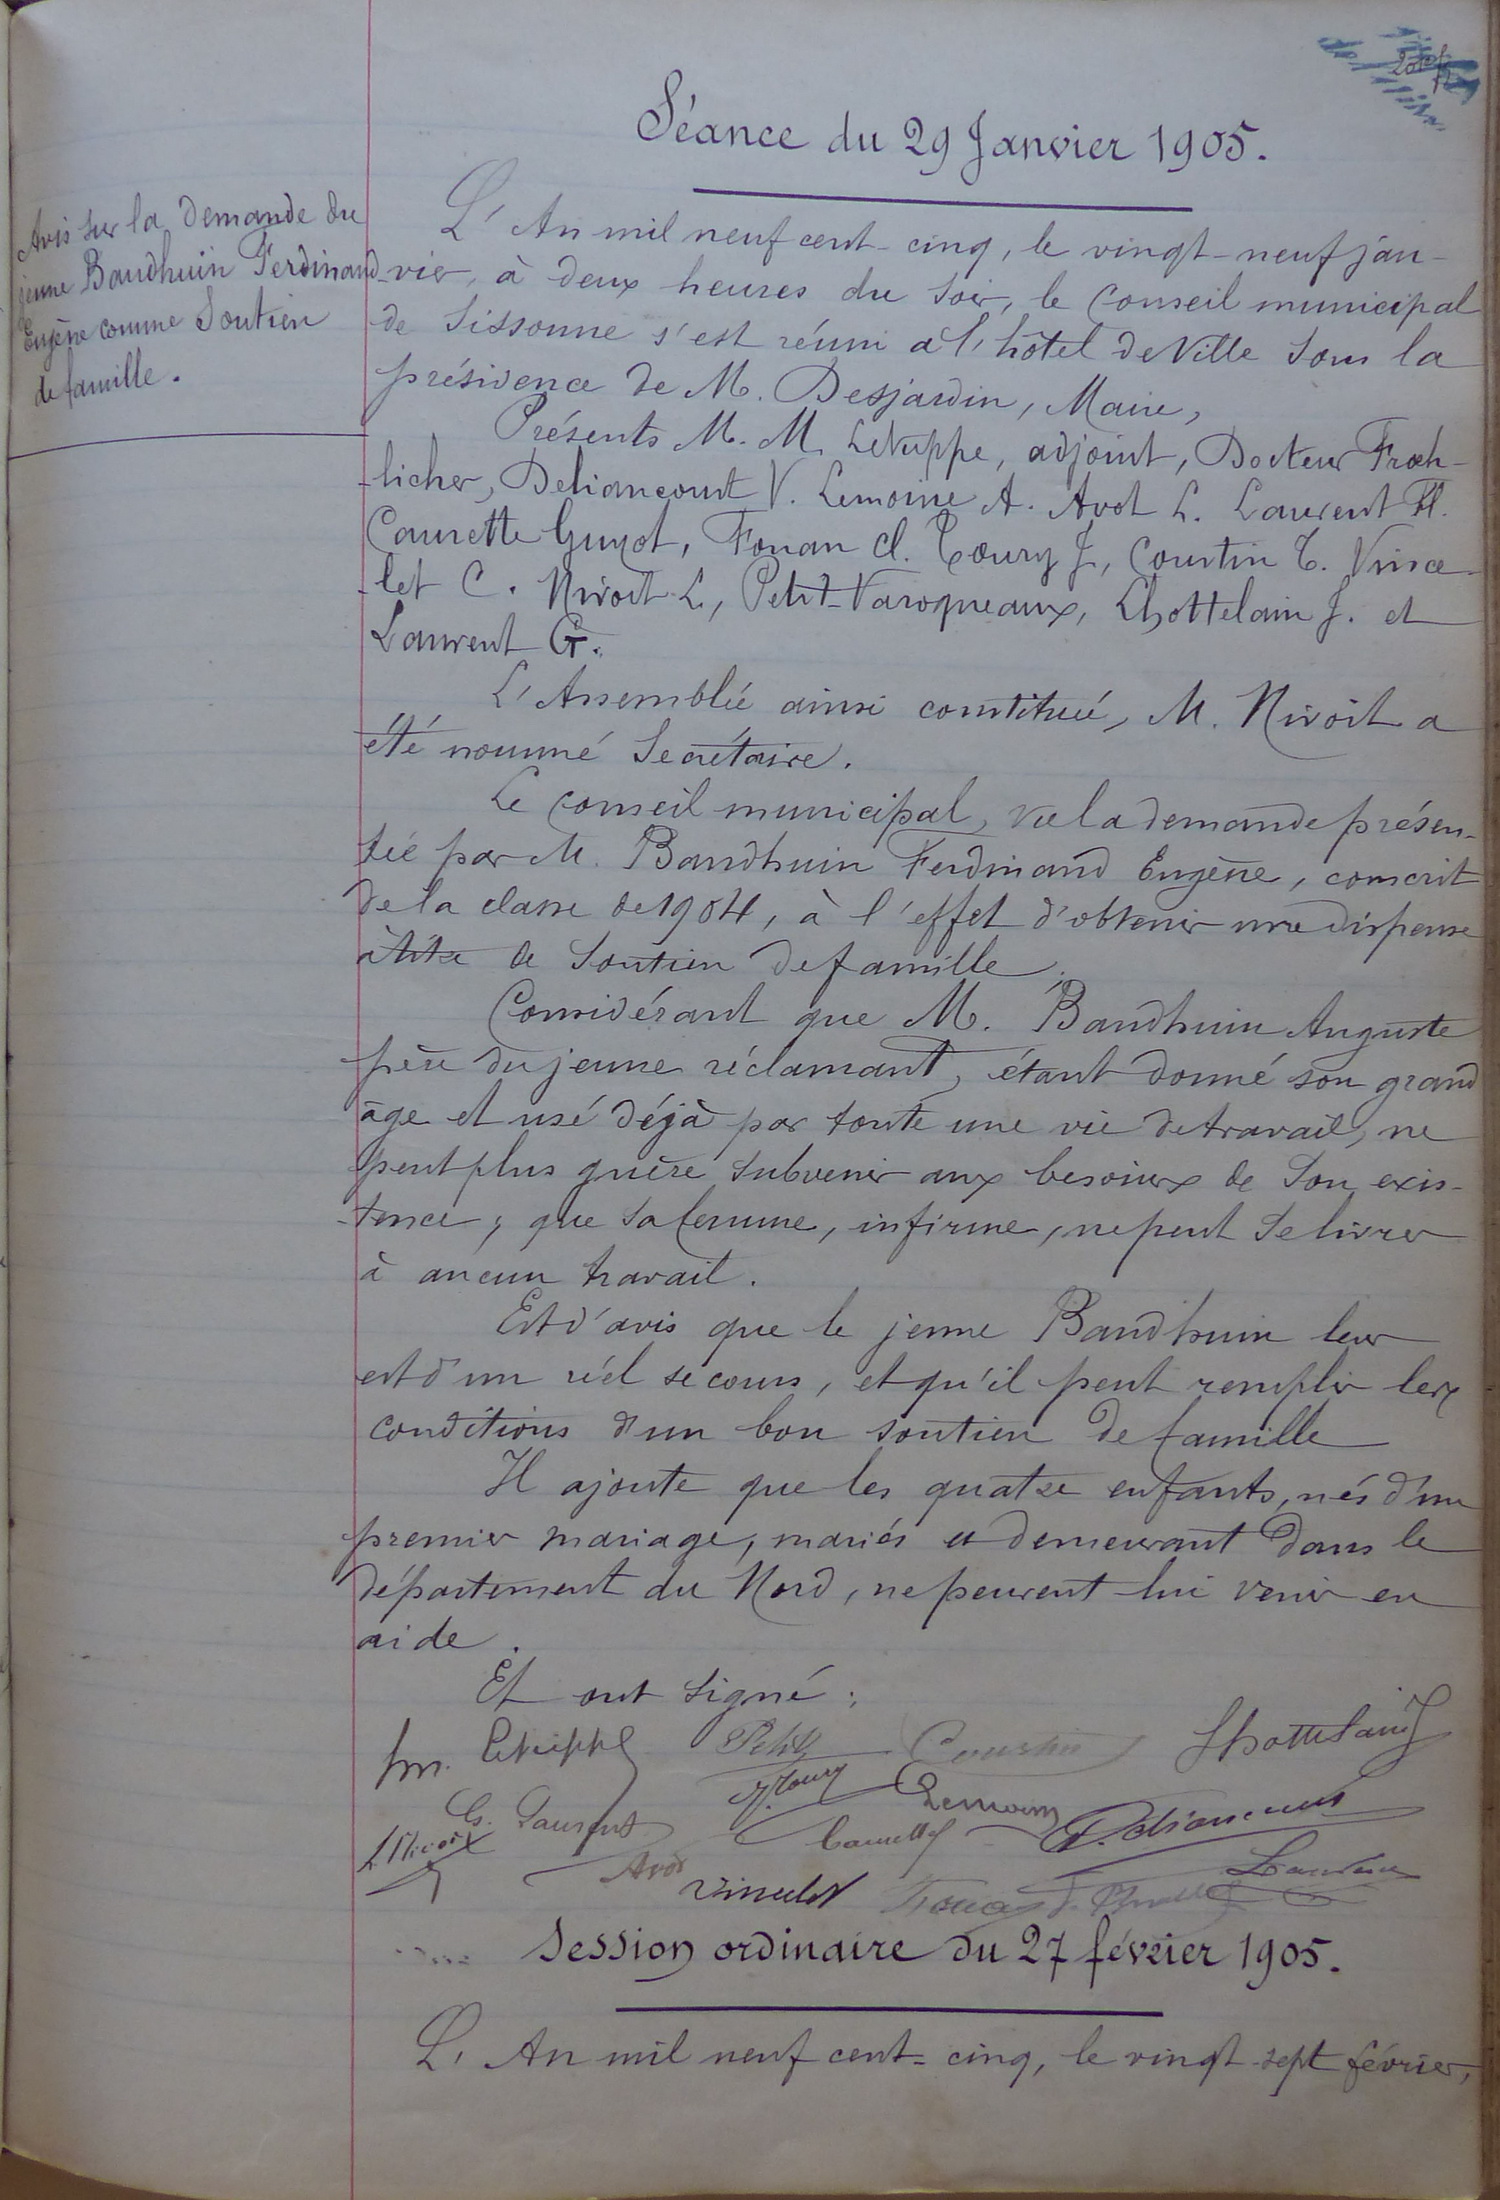 Séance du 29 Janvier 1905.
Avis sur la demande du
jeune Baudhuin Ferdinand
Eugène comme Soutien
de famille.
L'An mil neuf cent-cinq, le vingt-neuf jan-
-vier, à deux heures du soir, le Conseil municipal
de Sissonne s'est réuni à l'hôtel de Ville sous la
présidence de M. Desjardin, Maire,
Présents M. M. Letuppe, adjoint, Docteur Frœh-
-licher, Deliancourt V. Lemoine A. Avot L. Laurent H.
Caurette Guyot, Fouan Cl. Toury J, Courtin T. Vince-
-let C. Nivoit L, Petit-Varoqueaux, Lhottelain J. et
Laurent G.
L'Assemblée ainsi constituée, M. Nivoit a
été nommé Secrétaire.
Le Conseil municipal, vu la demande présen-
tée par M. Baudhuin Ferdinand Eugène, conscrit
de la classe de 1904, à l'effet d'obtenir une dispense
à titre de Soutien de famille;
Considérant que M. Baudhuin Auguste
père du jeune réclamant, étant donné son grand
âge et usé déjà par toute une vie de travail, ne
peut plus guère subvenir aux besoins de son exis-
-tence, que sa femme, infirme, ne peut se livrer
à aucun travail.
Est d'avis que le jeune Baudhuin leur
est d'un réel secours, et qu'il peut remplir les
conditions d'un bon soutien de famille
Il ajoute que les quatre enfants, nés d'un
premier mariage, mariés et demeurant dans le
département du Nord, ne peuvent lui venir en
aide.
Et ont signé:
Letuppe Petit Courtin Lhottelain J
G. Laurent J. Toury Lemoine
L. Nivoit Caurette V. Deliancourt
Avot Vincelet Fouan Laurent
Session ordinaire du 27 février 1905.
L'An mil neuf cent-cinq, le vingt-sept février,